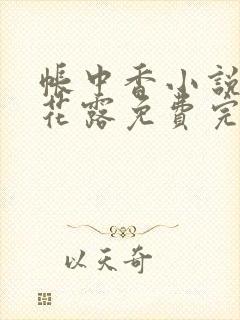 帳中香小說
花露免費完
以天奇